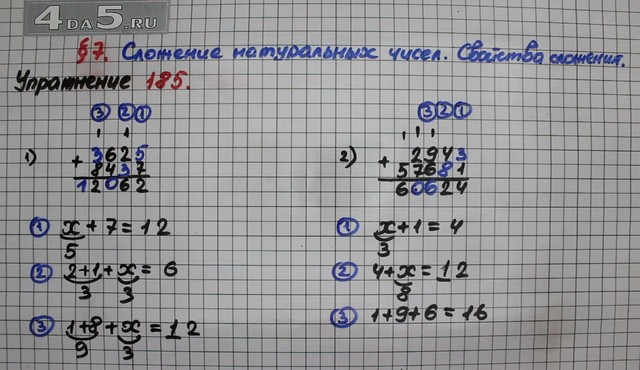 4DA5.RU
§7. Сложение натуральных чисел. Свойства сложения.
Упражнение 185.
③ ②①
1 1
1) + 3625
8437
12062
① x + 7 = 12
5
② 2+1 + x = 6
3 3
③ 1+8 + x = 12
9 3
③②①
1 1 1
2) + 2943
57681
60624
① x + 1 = 4
3
② 4 + x = 12
8
③ 1+9+6=16